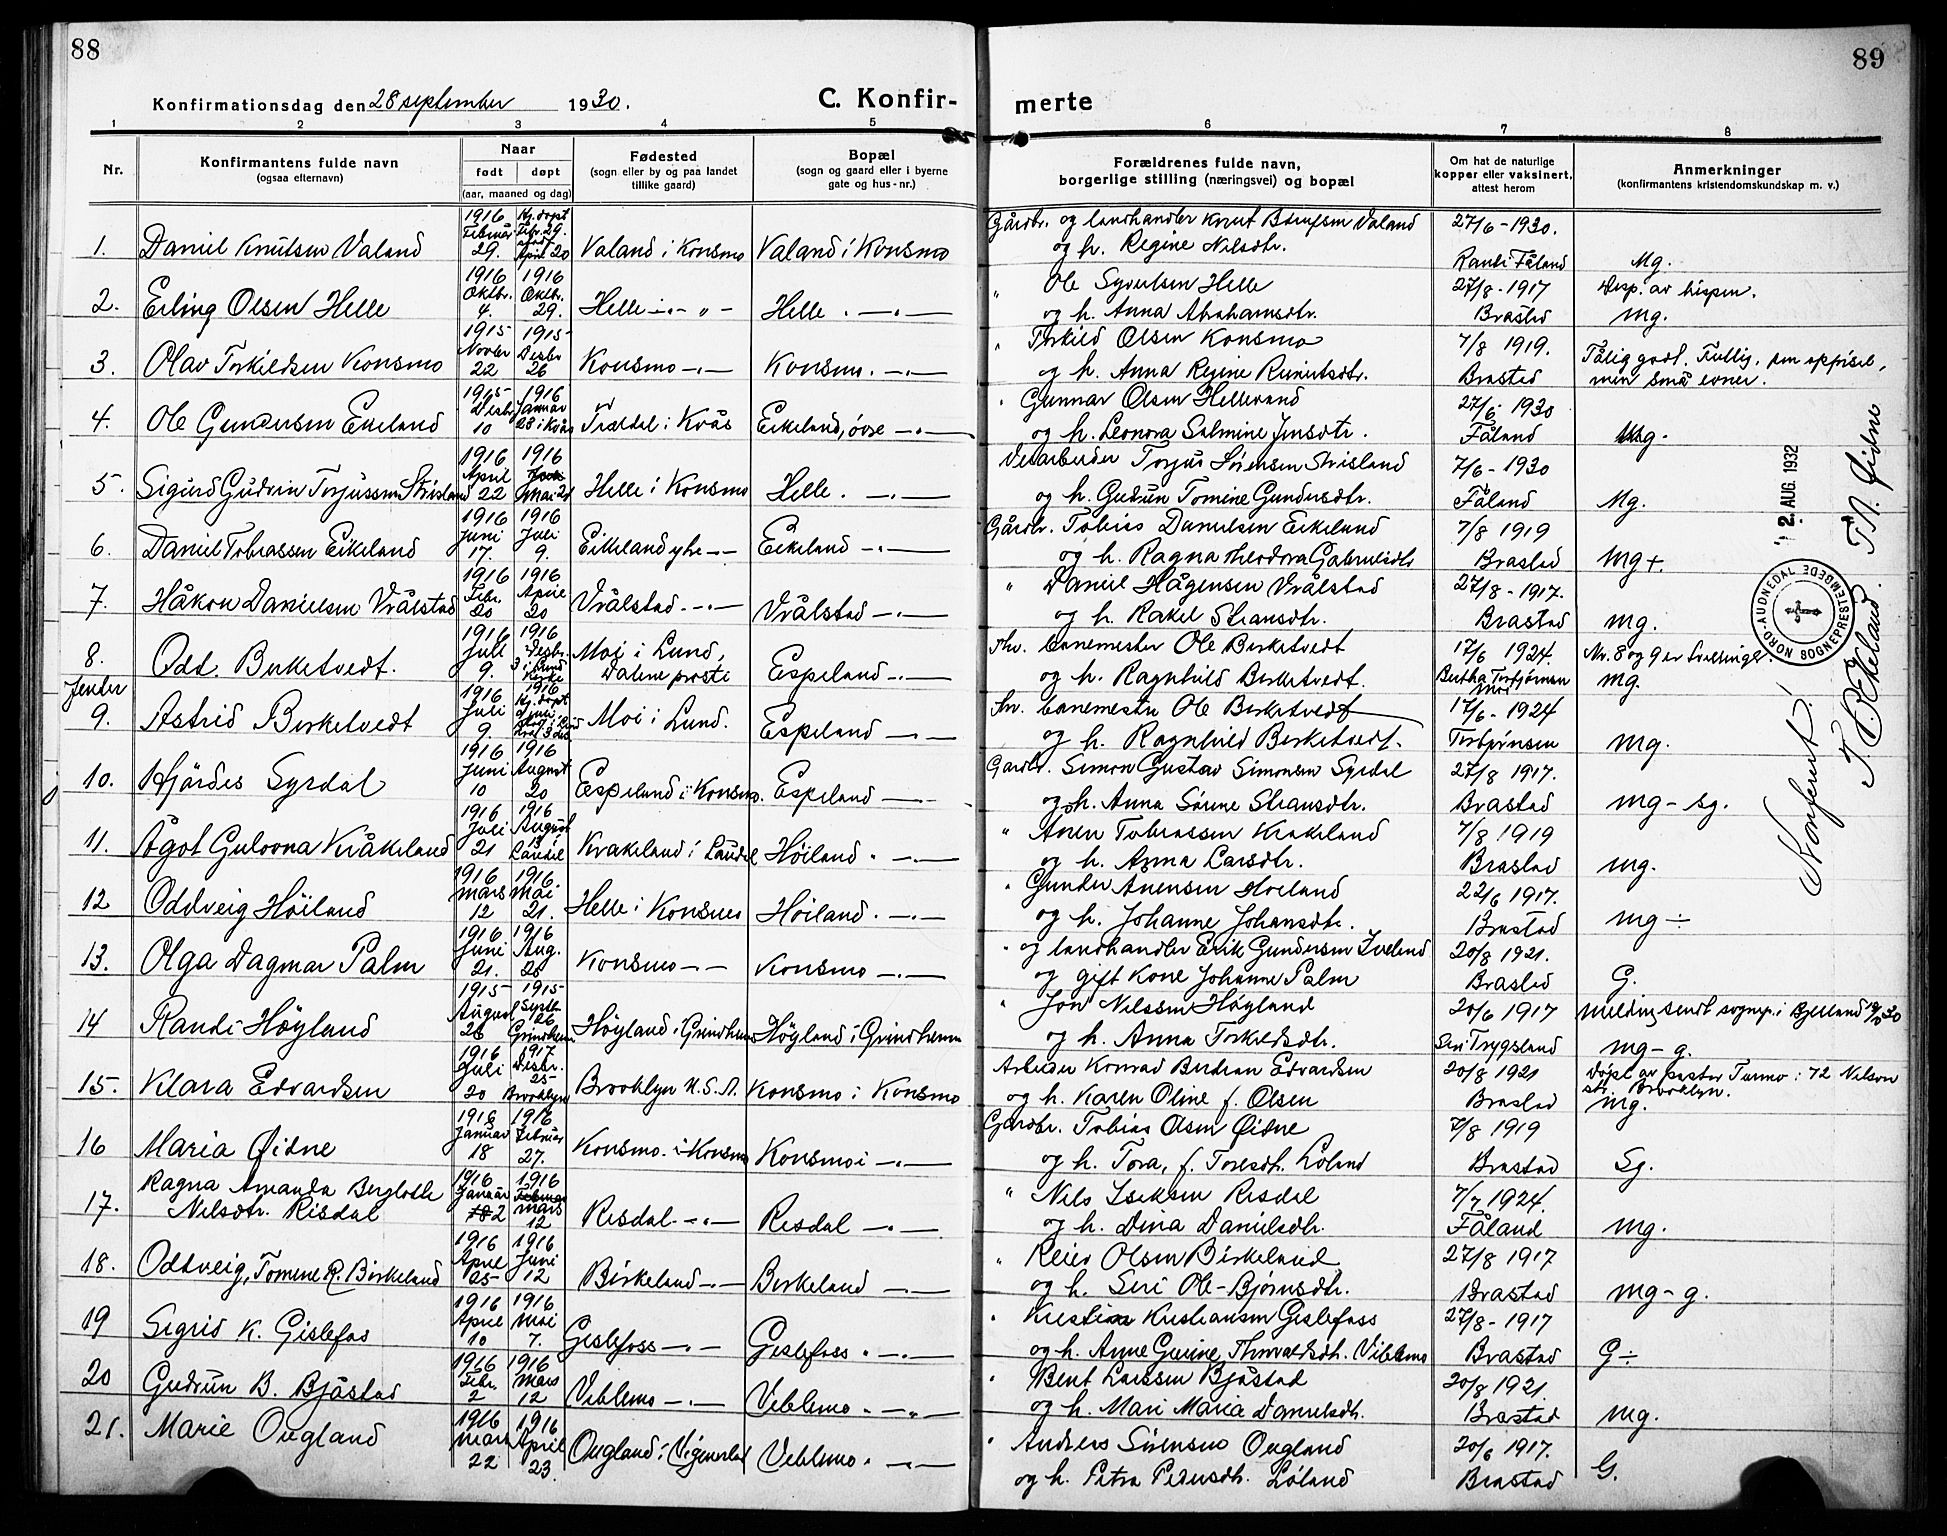 88
89
Konfirmationsdag den 28 september 1930.
C. Konfir-
merte
1 2 3 4 5 6 7 8
Nr.
Konfirmantens fulde navn
(ogsaa efternavn)
Naar
født døpt
(aar, maaned og dag)
Fødested
(sogn eller by og paa landet
tillike gaard)
Bopæl
(sogn og gaard eller i byerne
gate og hus-nr.)
Forældrenes fulde navn,
borgerlige stilling (næringsvei) og bopæl
Om hat de naturlige
kopper eller vaksinert,
attest herom
Anmerkninger
(konfirmantens kristendomskundskap m. v.)
1. Daniel Knutsen Valand
1916 Februar 29.
Hj. døpt Febr. 29. April 20
Valand i Konsmo
Valand i Konsmo
Gårdbr. og landhandler Knut Valand
og h. Regine Nilsdtr.
27/6-1930.
Fåland
Mg.
2. Erling Olsen Helle
1916 Oktbr. 4.
1916 Oktbr. 29.
Helle - " -
Helle - " -
" Ole Syvertsen Helle
og h. Anna Abrahamsdtr.
27/8-1917
Brastad
Desp. av bispen.
Mg.
3. Olav Torkildsen Konsmo
1915 Novbr 22
1915 Desbr 26
Konsmo - " -
Konsmo. - " -
" Torkild Olsen Konsmo
og h. Anna Regine Reiertsdtr.
7/8 1919.
Brastad
Tålig god. Flittig,
men små evner.
4. Ole Gundersen Eikeland
1915 Desbr 10
1916 Januar 28 i Kvås
Trældal i Kvås
Eikeland, øvre - " -
" Gunnar Olsen Helleland
og h. Leonora Salmine Jensdtr.
27/6 1930
Fåland
Mg.
5. Sigurd Gudvin Torjussen Strisland
1916 April 22
1916 Mai 21
Helle i Konsmo
Helle. - " -
Veiarbeider Torjus Sørensen Strisland
og h. Gudrun Tomine Gundersdtr.
7/6-1930
Fåland
Mg.
6. Daniel Tobiassen Eikeland
1916 Juni 17.
1916 Juli 9.
Eikeland ytre - " -
Eikeland - " -
Gårdbr. Tobias Danielsen Eikeland
og h. Ragna Theodora Gabrielsdtr
7/8 1919
Brastad
Mg+.
7. Håkon Danielsen Vrålstad
1916 Febr. 20
1916 April 20
Vrålstad. - " -
Vrålstad - " -
" Daniel Hågensen Vrålstad
og h. Rakel Stiansdtr.
27/8-1917.
Brastad
Mg.
8. Odd Birketvedt.
1916 Juli 9.
1916 Desbr. 3 i Lund kirke
Moi i Lund,
Dalene prosti
Espeland - " -
Fhv. banemester Ole Birketvedt
og h. Ragnhild Birketvedt.
17/6 1924.
Bertha Torbjørnsen
Moi
Nr. 8 og 9 er tvillinger.
Mg.
Jenter
9. Astrid Birketvedt
1916 Juli 9.
1916 Hj. døpt
Moi i Lund.
Espeland - " -
Fhv. banemester Ole Birketvedt
og h. Ragnhild Birketvedt.
17/6-1924
Torbjørnsen
Mg.
10. Hjørdis Syrdal
1916 Juni 10
1916 August 20
Espeland i Konsmo.
Espeland - " -
Gårdbr. Simon Gustav Simonsen Syrdal
og h. Anna Sørine Stiansdtr.
27/8 1917.
Brastad
Mg-sg.
11. Ågot Gulovna Kråkeland
1916 Juli 21
1916 August 13 Laudal
Kråkeland i Laudal
Høiland. - " -
" Anen Tobiassen Kråkeland
og h. Anna Larsdtr.
7/8 1919
Brastad
Mg.
12 Oddveig Høiland
1916 Mars 12
1916. Mai 21.
Helle i Konsmo
Høiland. - " -
" Gunder Anensen Høiland
og h. Johanne Johansdtr.
22/6 1917.
Brastad
Mg ÷
13. Olga Dagmar Palm
1916 Juni 21.
1916 Aug. 20
Konsmo - " -
Konsmo - " -
" og landhandler Erik Gundersen Iveland
og gift kone Johanne Palm
20/8 1921.
Brastad
G.
14 Randi Høyland
1915 August 26
1915 Septbr. 26 Grindheim
Høyland i Grindheim
Høyland i Grindheim
" Jon Nilssen Høyland
og h. Anna Torkelsdtr.
20/6 1917
Siri Trygsland
Melding sendt sognep. i Bjelland
Mg-g.
15. Klara Edvardsen
1916 Juli 20
1917 Desbr. 25 Brooklyn
Brooklyn U.S.A.
Konsmo i Konsmo
Arbeider Konrad Edvardsen
og h. Karen Oline f. Olsen
20/8 1921
Brastad
Døpt av pastor Turmo i 72 Nilson
str. Brooklyn.
Mg.
16 Maria Øidne
1916 Januar 18
1916 Februar 27.
Konsmo. i Konsmo
Konsmo i - " -
Gårdbr. Tobias Olsen Øidne
og h. Tora, f. Toresdtr. Løland
7/8 1919
Brastad
Sg.
17. Ragna Amanda Berglotte
Nilsdtr. Risdal
1916 Januar 2
1916 Mars 12
Risdal - " -
Risdal - " -
" Nils Isaksen Risdal
og h. Dina Danielsdtr.
7/7 1924.
Fåland
Mg.
18. Oddveig, Tomene R. Birkeland
1916 April 25
1916 Juni 12
Birkeland - " -
Birkeland - " -
" Reier Olsen Birkeland
og h. Siri Ole-Bjørnsdtr.
27/8 1917
Brastad
Mg-g.
19 Sigrid K. Gislefos
1916 April 10
1916 Mai 7.
Gislefoss - " -
Gislefoss. - " -
" Kristian Kristiansen Gislefoss
og h. Anne Gurine Thorvaldsdtr. Viblemo
27/8-1917
Brastad
G ÷
20 Gudrun B. Bjåstad
1916 Febr. 2
1916 Mars 12
Viblemo - " -
Viblemo - " -
" Bent Larssen Bjåstad
og h. Mari Maria Danielsdtr.
20/8 1921.
Brastad
Mg.
21. Marie Ougland
1916 Mars 22
1916 April 23.
Ougland i Vigmostad
Viblemo. - " -
" Anders Sørensen Ougland
og h. Petra Pedersdtr. Løland
20/6 1917.
Brastad
G.
2. AUG. 1932
NORD-AUDNEDAL SOGNEPRESTEMBEDE
Konferert!
T. Eikeland. T. A. Øidne